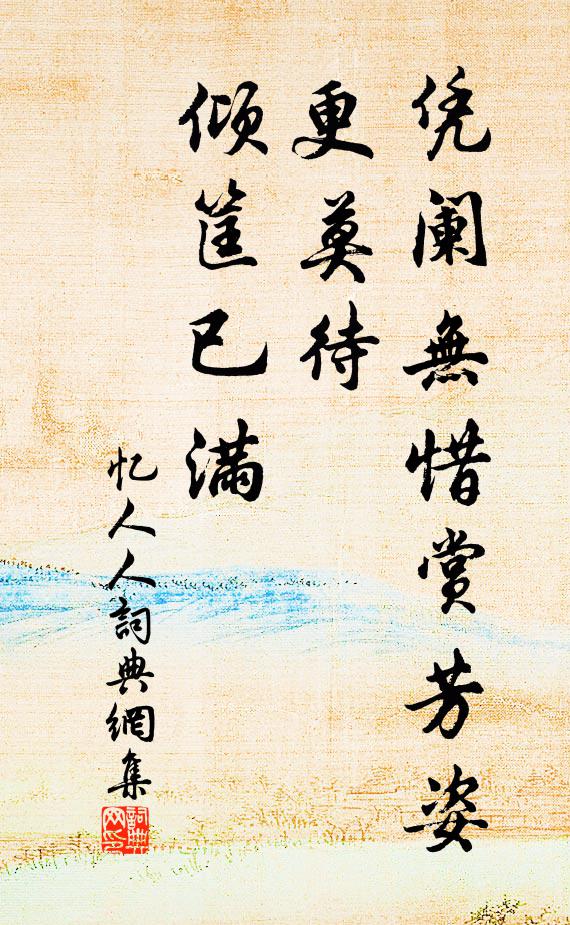 凭阑無惜赏芳姿
更莫待
倾筐已满
忆人人詞典網集
詞典网印